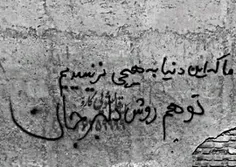 ما که این دنیا به هیچی نرسیدیم
تو هم روش دلبر جان